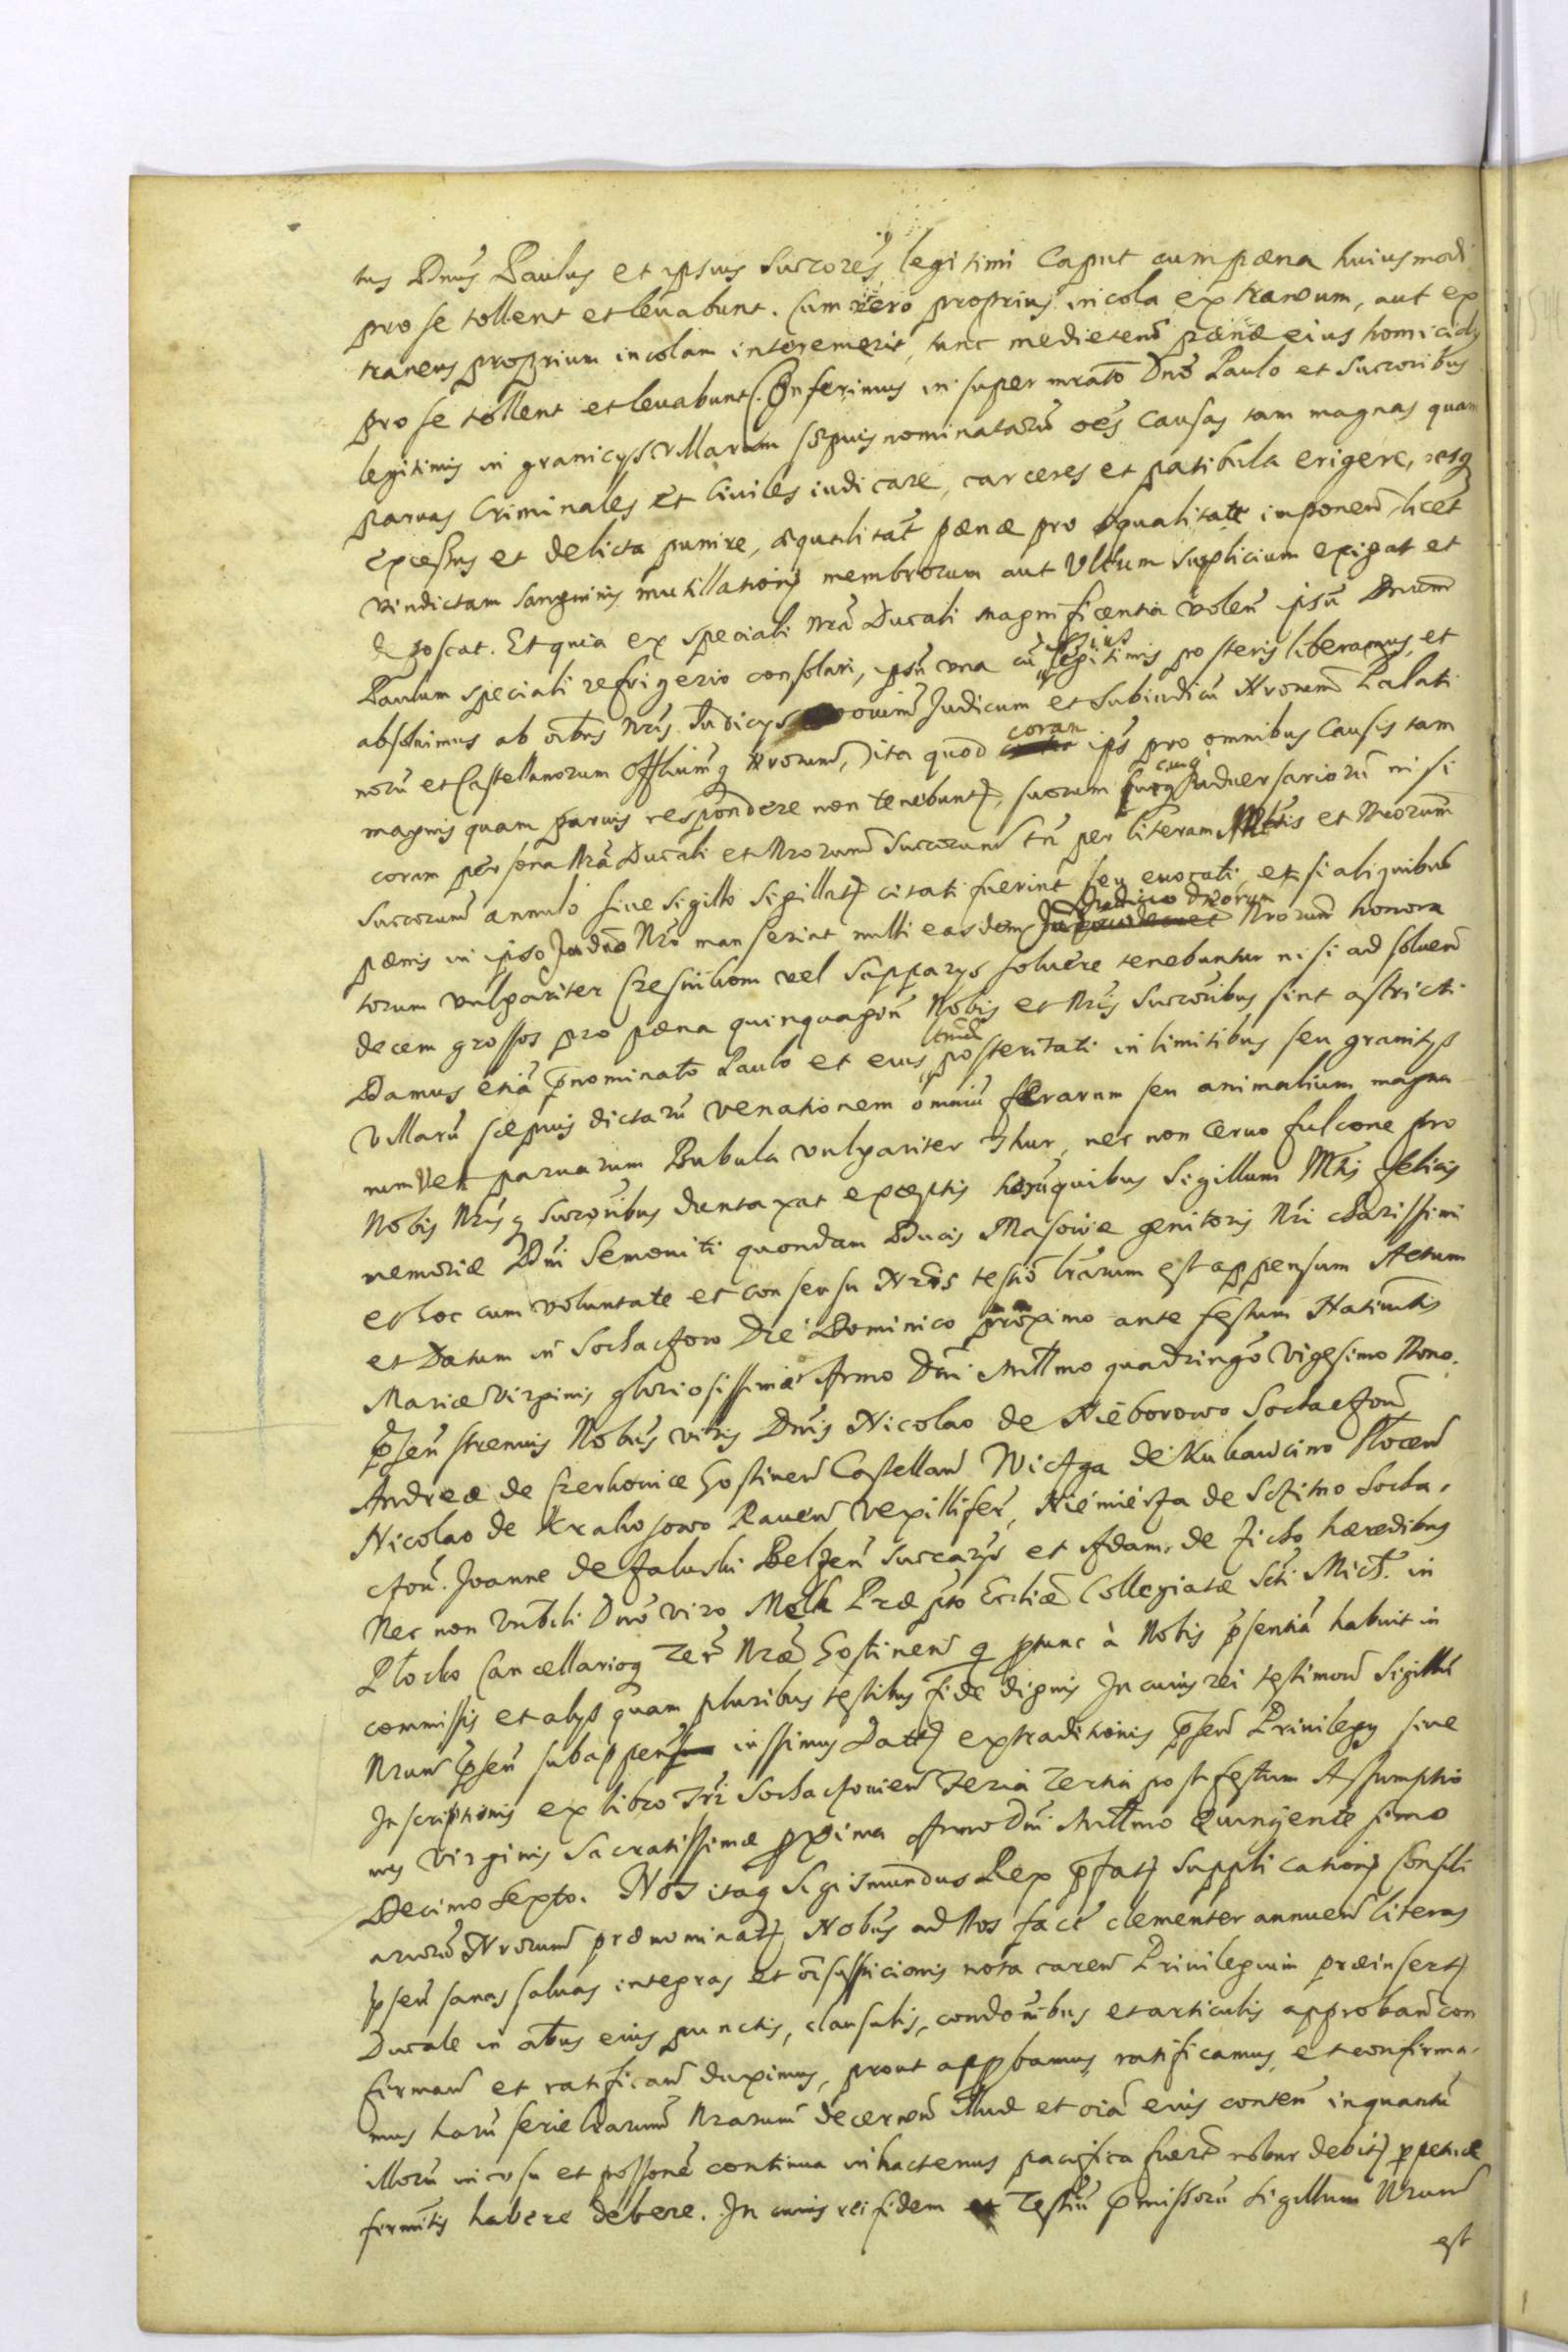 tus Dnus Paulus et ipsius Succores legitimi caput cum pæna huiusmodi
pro se tollent et levabunt. Cum vero proprius incola extraneum, aut ex
traneus proprium incolam interemerit, tunc medietem pænæ eius homicidy
pro se tollent et levabunt. Conferimus insuper mrato Dno Paulo et Succoribus
legitimis in granicys villarum sæpius nominatarũ oẽs causas tam magnas quam
parvas Criminales et Civiles iudicare, carceres et patibula erigere, resq
excessus et delicta punire, æqualitat pænæ pro qualitate imponen licet
vindictam sanguinis mutillationis membrorum aut Ultum Supplicium exigat et
deposcat. Et quia ex speciali nrã Ducali magnificentia volen ipsũ Dnum
Paulum speciali refrigerio consolari, ipsũ una cũ eius legitimis posteris liberamus, et
absolvimus ab oibus nris Iudicys ovium Iudicum et Subiudicũ Nrorum Palati
norũ et Castellanorum Offliumq Nrorum, ita quod coram ips pro omnibus Causis tam
magnis quam parvis respondere non tenebunt, suorum cuiq Adversariorũ nisi
coram persona Nrã Ducali et Nrorum Succorum tñ per literam Nris et Nrorum
Succorum annulo sive sigillo sigillat citati fuerint seu evocati et si aliquibus
pænis in ipso Iudno Nro manserint nulli easdem Iudicio Dnorum Nrorum honora
torum vulgariter Czesnikom vel Sapparys solvere tenebuntur nisi ad solven
decem grossos pro pæna quinquagen Nobis et Nris Succoribus sint astricti
Damus etiã p̃nominato Paulo et eius posteritati in limitibus seu granicys
Villarũ sæpius dictarũ venationem omniũ ferarum seu animalium magna
rum vel parvarum Bubula vulgariter Thur, nec non cervo fulcone pro
Nobis Nrisq Succoribus duntaxat exceptis harũ quibus Sigillum Mtis felicis
memoriæ Dni Semoviti quondam Ducis Masoviæ genitoris Nri charissimi
et hoc cum voluntate et consensu Nris testio lrarum est appensum Actum
et Datum in Sochaczow Die Dominico proximo ante festum Natiuitis
Mariæ virginis gloriosissimæ Anno Dni Millmo quadringeo Vigesimo Nono.
p̃sen strenuis Nobũs viris Dnis Nicolao de Nieborowo Sochaczon
Andreæ de Czerkonice Gostinen Castellan Wictga de Kuhawcino Plocen
Nicolao de Krakosowo Raven Vexillifer, Niemierza de Sczitno Socha,
czon. Joanne de Zaluski Belzen Succarys et Adam. de Jicho hæredibus
Nec non Vnbili Dno viro Preapto Ecclliæ Collegiatæ Scti Mich. in
Plocko Cancellarioq Ter Nræ Gostinen q ptunc à Nobis p̃sentiã habuit in
commissis et alys quam pluribus testibus fide dignis In cuius rei testimon Sigillũ
Nrum p̃sen subappen iussimus Datt extraditionis p̃sen Privilegy sive
Inscriptionis ex libro Tri Sochaczovien Feria Tertia post festum Assumptio
nis Virginis Sacratissimæ pxima Anno Dni Millmo Quingentesimo
Decimo Sexto. Nos itaq Sigismundus Rex p̃fat Supplication Consili
ariorũ Nrorum prænominat Nobis ad Nos fact clementer annuen literas
p̃sen sanas salvas integras et oi suspicionis nota caren Privilegium præinsert
Ducale in oibus eius punctis, clausulis, condonibus et articulis approban con
firman et ratifican duximus, prout appbamus ratificamus, et confirma-
mus harũ serie lrarum Nrarum decernen illud et oia eius conten inquantũ
illorũ in usu et possone continua in hactenus pacifica fuert robur debit ppetuæ
firmitis habere debere. In cuius rei fidem et Testiũ p̃missorũ Sigillum Nrum
est